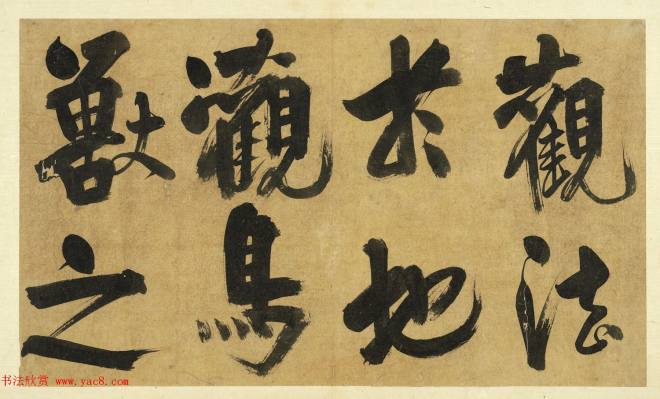 觀法
於地
觀鳥
獸之
书法欣赏 www.yac8.com